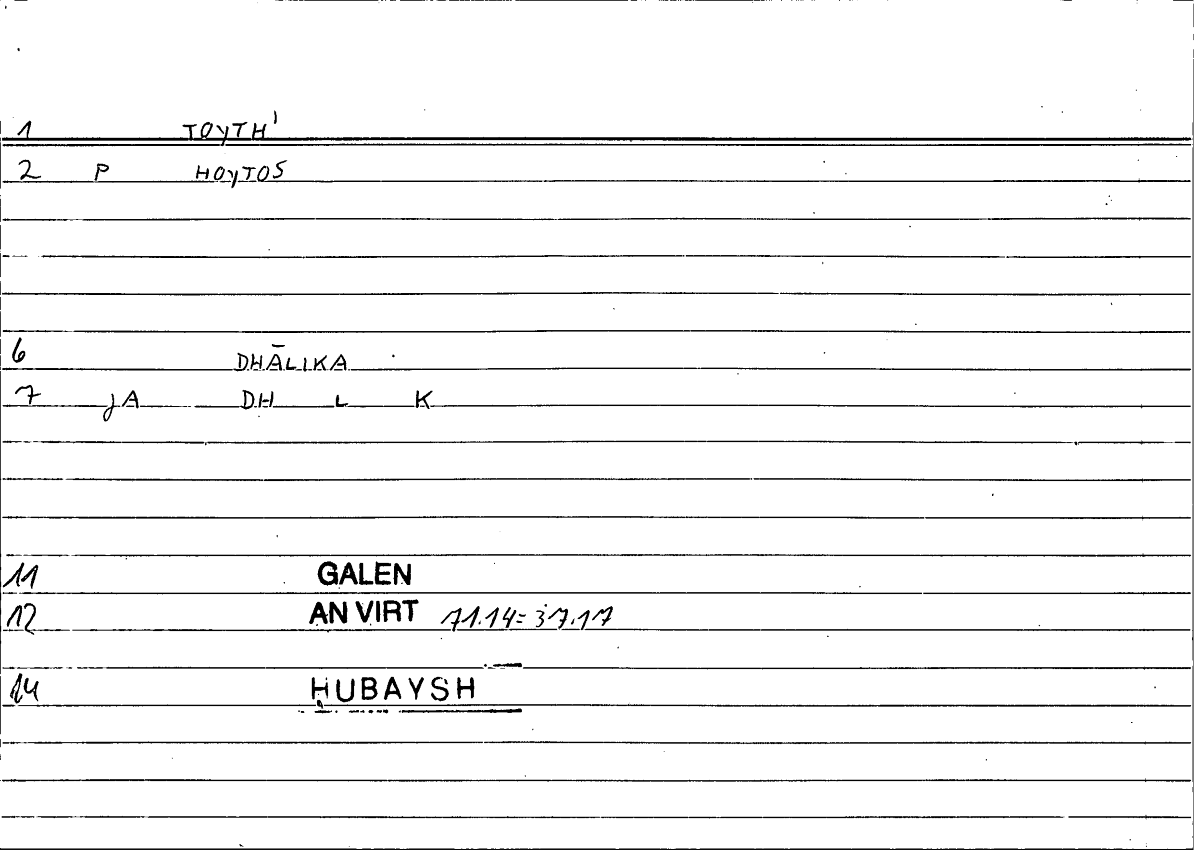 1 TOYTH'
2 P HOYTOS
6 DHĀLIKA
7 jA DH L K
11 GALEN
12 AN VIRT 71.14=37.17
14 HUBAYSH